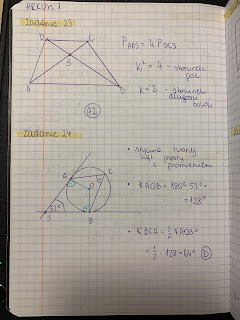 ARKUSZ 1
Zadanie 23
D
C
S
A
B
P_ABS = 4 P_DCS
k² = 4 - stosunek pól
k = 2 - stosunek długości boków
A2
Zadanie 24
• styczna tworzy kąt prosty z promieniem
A
C
O
51°
S
B
• ∢AOB = 180° - 52° =
= 128°
• ∢BCA = ½ ∢AOB =
= ½ · 128 = 64° D